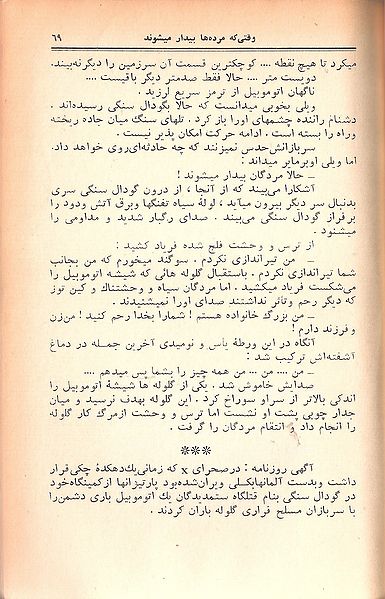 وقتی‌که مرده‌ها بیدار میشوند ۶۹
میکرد تا هیچ نقطه .... کوچکترین قسمت آن سرزمین را دیگر نه‌بیند.
دویست متر .... حالا فقط صدمتر دیگر باقیست ....
ناگهان اتوموبیل از ترمز سریع لرزید.
ویلی بخوبی میدانست که حالا بگودال سنگی رسیده‌اند .
دشنام راننده چشمهای اورا باز کرد . تلهای سنگ میان جاده ریخته
وراه را بسته است . ادامه حرکت امکان پذیر نیست .
سربازانش‌حدس نمیزنند که چه حادثه‌ای‌روی خواهد داد.
اما ویلی اوبرمایر میداند :
ـ حالا مردگان بیدار میشوند !
آشکارا می‌بیند که از آنجا ، از درون گودال سنگی سری
بدنبال سر دیگر بیرون میآید ، لولهٔ سیاه تفنگها وبرق آتش ودود را
برفراز گودال سنگی می‌بیند . صدای رگبار شدید و مداومی را
میشنود .
از ترس و وحشت فلج شده فریاد کشید :
ـ من تیراندازی نکردم . سوگند میخورم که من بجانب
شما تیراندازی نکردم . باستقبال گلوله هائی که شیشه اتوموبیل را
می‌شکست فریاد میکشید . اما مردگان سیاه و وحشتناك و کین توز
که دیگر رحم وتأثر نداشتند صدای اورا نمیشنیدند.
ـ من بزرگ خانواده هستم ! شمارا بخدا رحم کنید ! من‌زن
و فرزند دارم !
آنگاه در این ورطهٔ یاس و نومیدی آخرین جمله در دماغ
آشفته‌اش ترکیب شد :
ـ من .... من ... من همه چیز را پشما پس میدهم ....
صدایش خاموش شد . یکی از گلوله ها شیشهٔ اتوموبیل را
اندکی بالاتر از سراو سوراخ کرد . این گلوله بهدف نرسید و میان
جدار چوبی پشت او نشست اما ترس و وحشت ازمرگ کار گلوله
را انجام داد و انتقام مردگان را گرفت .
***
آگهی روزنامه : درصحرای x که زمانی‌یك‌دهکدهٔ چکی‌قرار
داشت وبدست آلمانهابکلی ویران‌شده‌بود پارتیزانها ازکمینگاه‌خود
در گودال سنگی بنام قتلگاه ستمدیدگان یك اتوموبیل باری دشمن‌را
با سربازان مسلح فراری گلوله باران کردند .